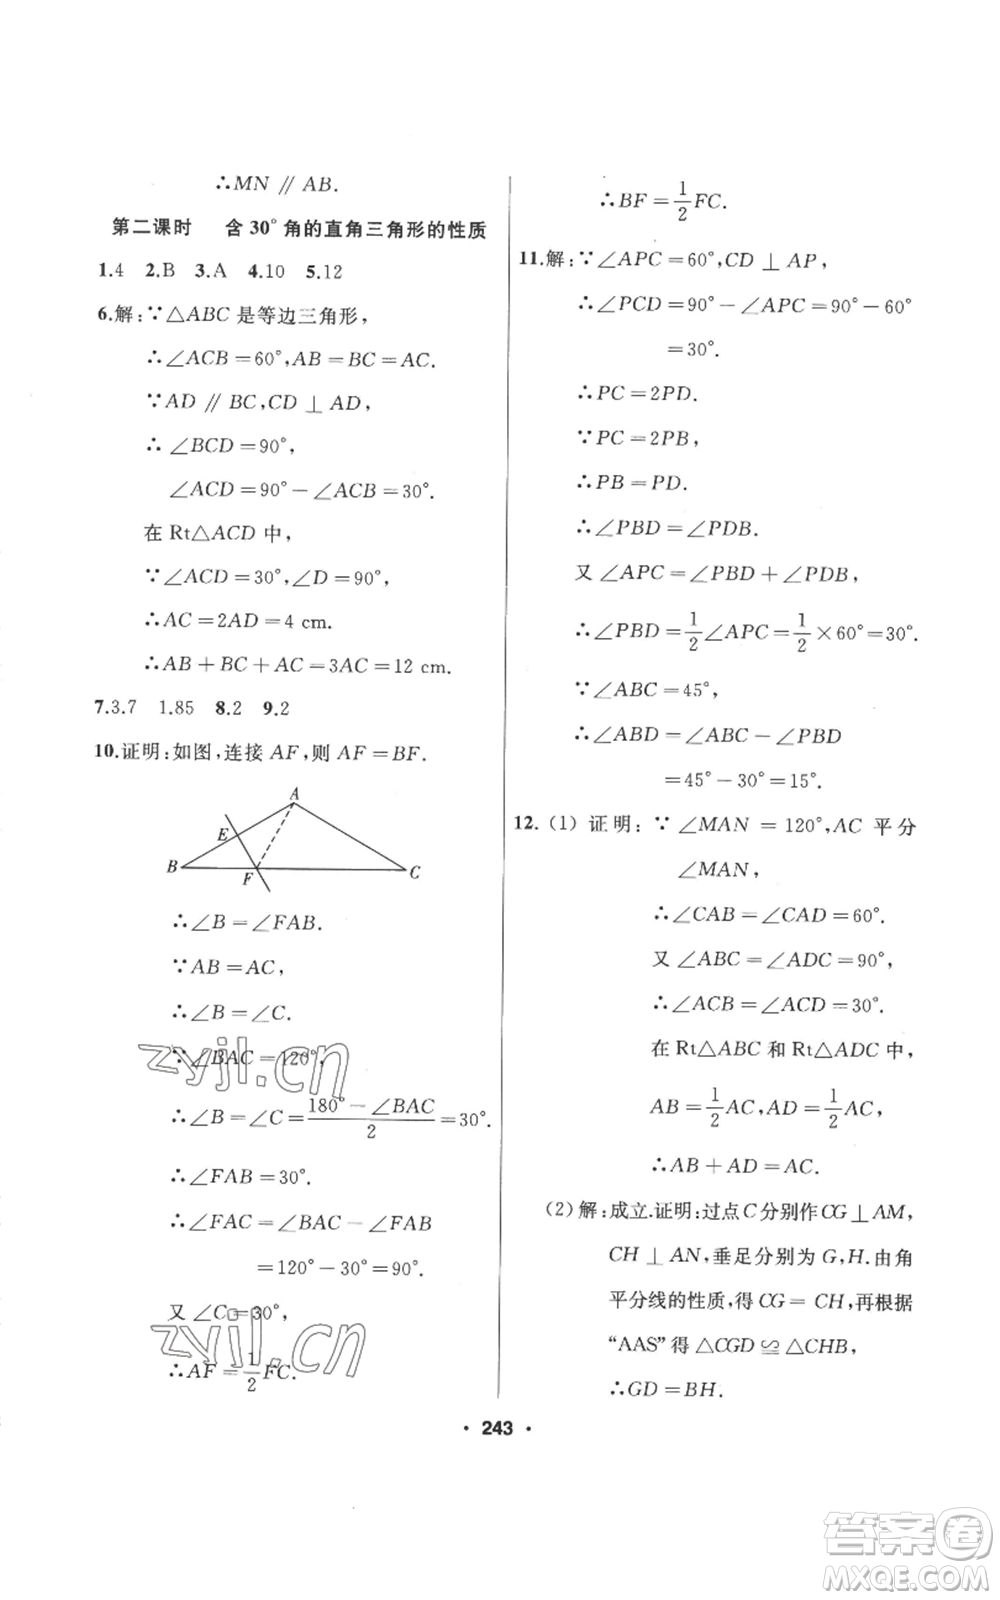 ∴MN∥AB.
第二课时 含30°角的直角三角形的性质
1.4 2.B 3.A 4.10 5.12
6.解:∵△ABC是等边三角形,
∴∠ACB=60°,AB=BC=AC.
∵AD∥BC,CD⊥AD,
∴∠BCD=90°,
∠ACD=90°-∠ACB=30°.
在Rt△ACD中,
∵∠ACD=30°,∠D=90°,
∴AC=2AD=4 cm.
∴AB+BC+AC=3AC=12 cm.
7.3.7 1.85 8.2 9.2
10.证明:如图,连接AF,则AF=BF.
A
E
B
F
C
∴∠B=∠FAB.
∵AB=AC,
∴∠B=∠C.
∵∠BAC=120°,
∴∠B=∠C=\frac{180°-∠BAC}{2}=30°.
∴∠FAB=30°.
∴∠FAC=∠BAC-∠FAB
=120°-30°=90°.
又∠C=30°,
∴AF=\frac{1}{2}FC.
∴BF=\frac{1}{2}FC.
11.解:∵∠APC=60°,CD⊥AP,
∴∠PCD=90°-∠APC=90°-60°
=30°.
∴PC=2PD.
∵PC=2PB,
∴PB=PD.
∴∠PBD=∠PDB.
又∠APC=∠PBD+∠PDB,
∴∠PBD=\frac{1}{2}∠APC=\frac{1}{2}×60°=30°.
∵∠ABC=45°,
∴∠ABD=∠ABC-∠PBD
=45°-30°=15°.
12.(1)证明:∵∠MAN=120°,AC平分
∠MAN,
∴∠CAB=∠CAD=60°.
又∠ABC=∠ADC=90°,
∴∠ACB=∠ACD=30°.
在Rt△ABC和Rt△ADC中,
AB=\frac{1}{2}AC,AD=\frac{1}{2}AC,
∴AB+AD=AC.
(2)解:成立.证明:过点C分别作CG⊥AM,
CH⊥AN,垂足分别为G,H.由角
平分线的性质,得CG=CH,再根据
“AAS”得△CGD≌△CHB,
∴GD=BH.
·243·
zyjl.cn
zyjl.cn
答案卷
MXQE.COM